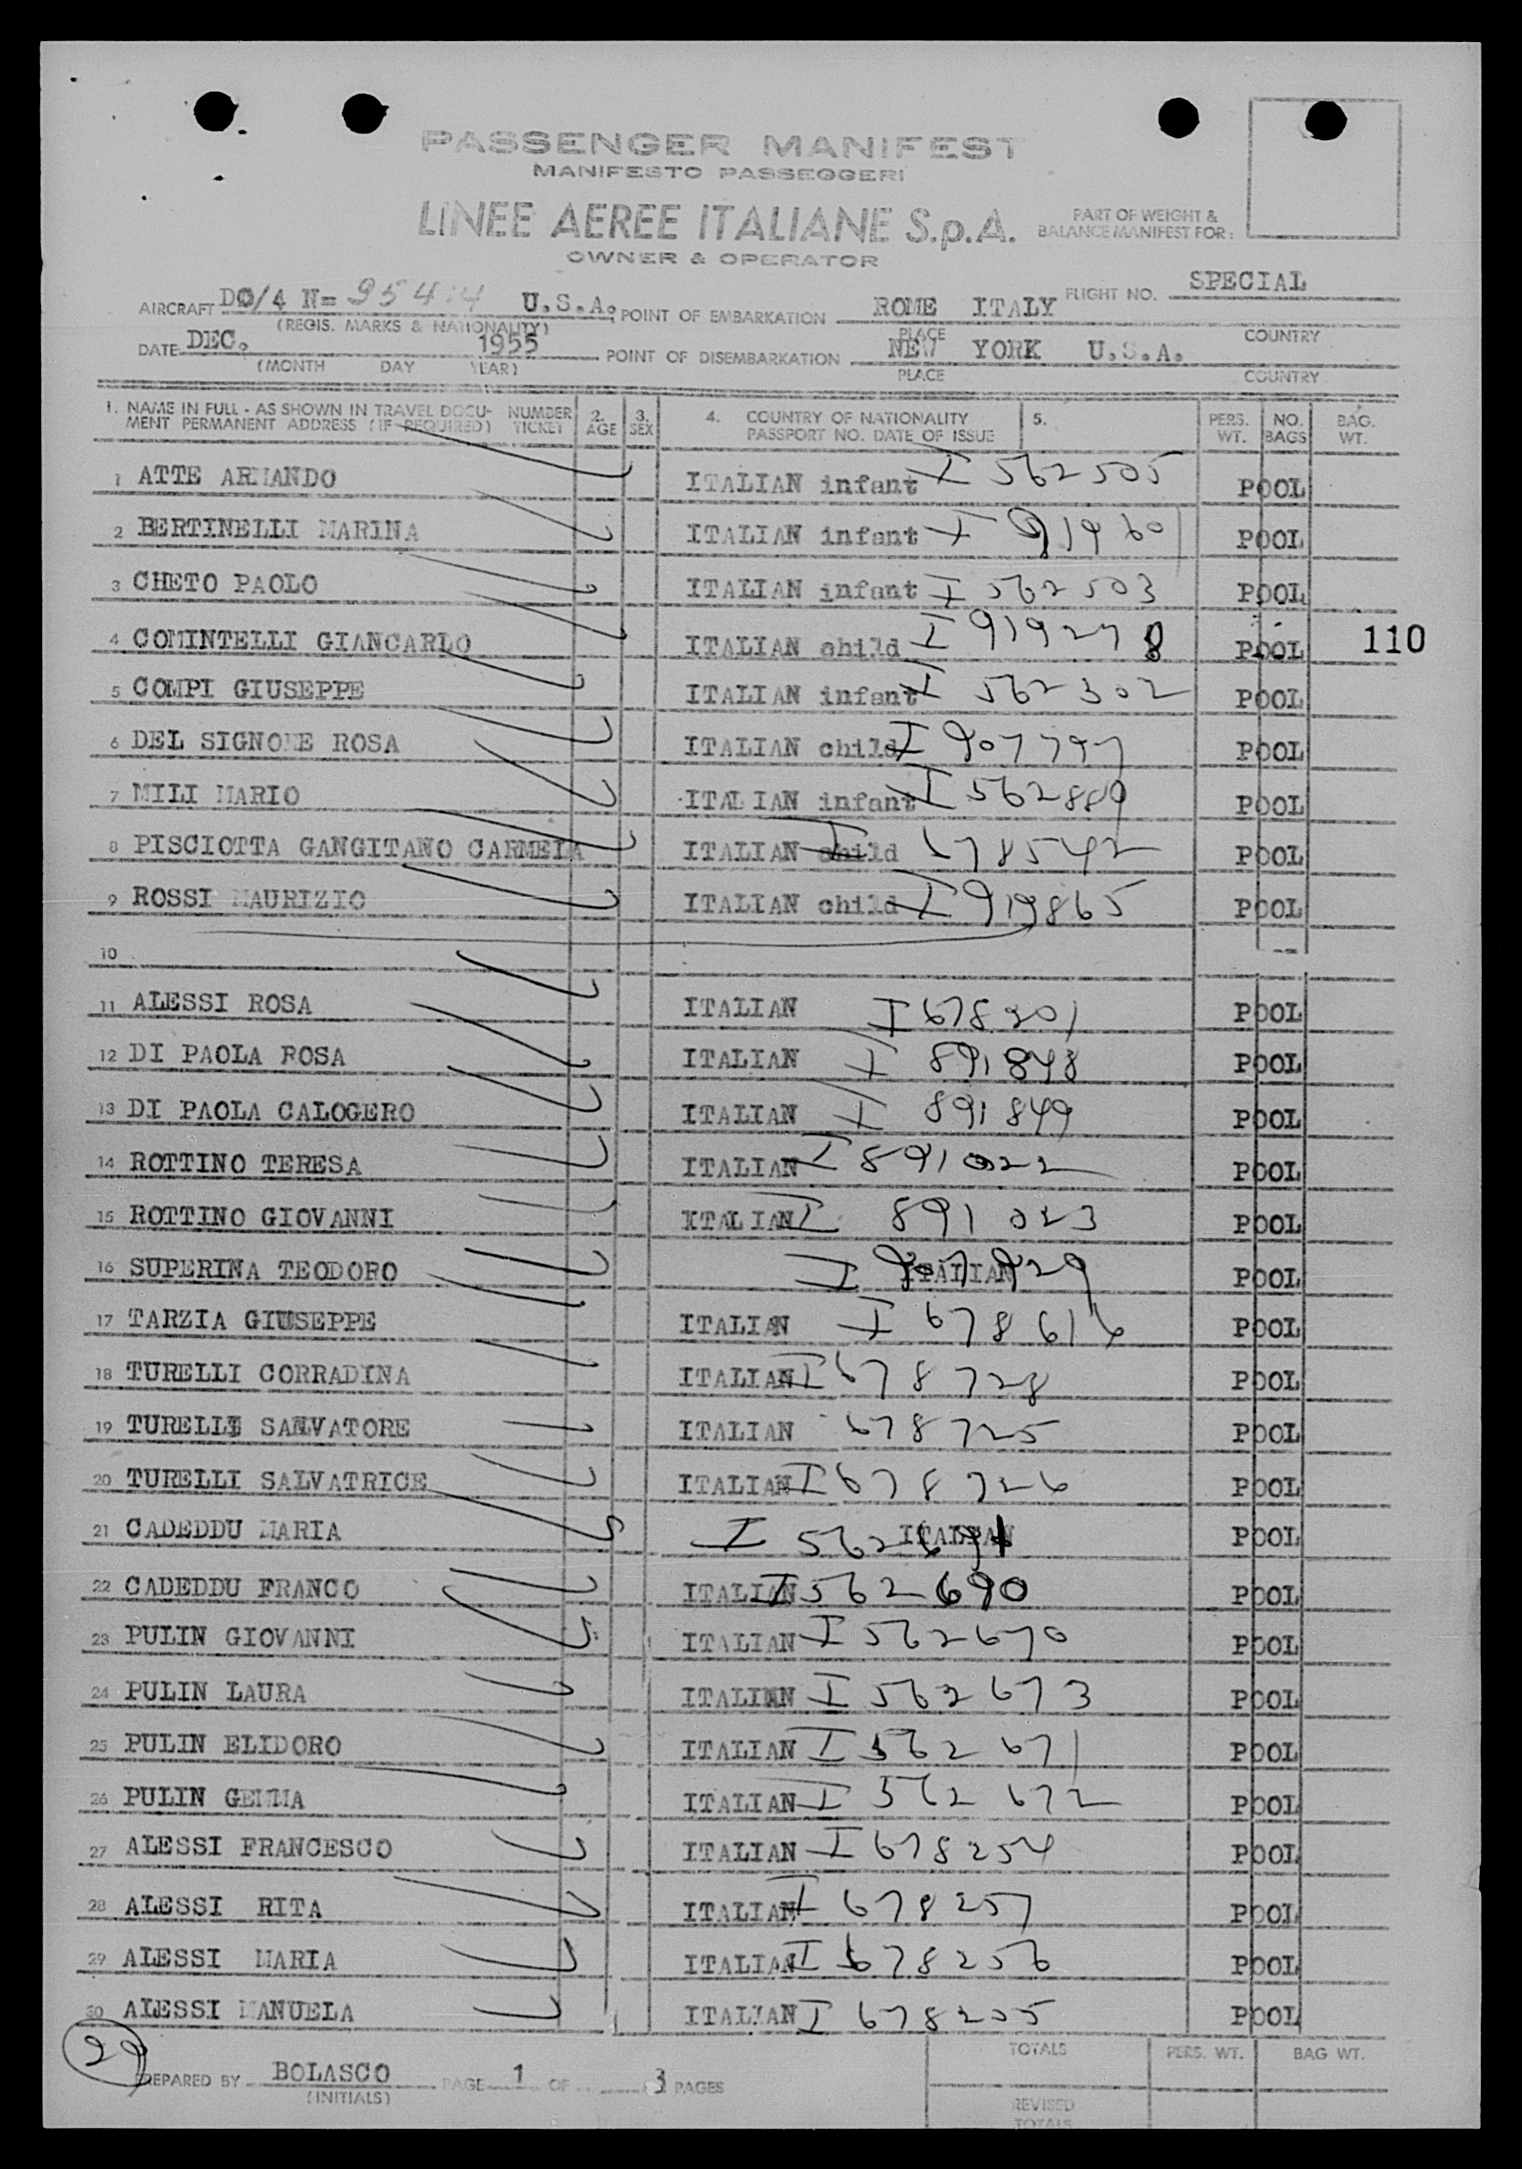 PASSENGER MANIFEST
MANIFESTO PASSEGGERI
LINEE AEREE ITALIANE S.p.A.
OWNER & OPERATOR
PART OF WEIGHT &
BALANCE MANIFEST FOR:
AIRCRAFT DC/4 N= U.S.A. POINT OF EMBARKATION ROME ITALY FLIGHT NO. SPECIAL
(REGIS. MARKS & NATIONALITY) PLACE COUNTRY
DATE DEC. 1955 POINT OF DISEMBARKATION NEW YORK U.S.A.
(MONTH DAY YEAR) PLACE COUNTRY
1. NAME IN FULL - AS SHOWN IN TRAVEL DOCU- NUMBER 2. 3. 4. COUNTRY OF NATIONALITY 5. PERS. NO. BAG.
MENT PERMANENT ADDRESS (IF REQUIRED) TICKET AGE SEX PASSPORT NO. DATE OF ISSUE WT. BAGS WT.
1 ATTE ARMANDO ITALIAN infant I 562505 POOL
2 BERTINELLI MARINA ITALIAN infant I 919601 POOL
3 CHETO PAOLO ITALIAN infant I 562503 POOL
4 COMINTELLI GIANCARLO ITALIAN child I 919278 POOL 110
5 COMPI GIUSEPPE ITALIAN infant I 562302 POOL
6 DEL SIGNORE ROSA ITALIAN child I 907797 POOL
7 MILI MARIO ITALIAN infant I 562889 POOL
8 PISCIOTTA GANGITANO CARMELA ITALIAN child I 678542 POOL
9 ROSSI MAURIZIO ITALIAN child I 919865 POOL
10
11 ALESSI ROSA ITALIAN I 678201 POOL
12 DI PAOLA ROSA ITALIAN I 891848 POOL
13 DI PAOLA CALOGERO ITALIAN I 891849 POOL
14 ROTTINO TERESA ITALIAN I 891022 POOL
15 ROTTINO GIOVANNI ITALIAN I 891023 POOL
16 SUPERINA TEODORO I 907929 ITALIAN POOL
17 TARZIA GIUSEPPE ITALIAN I 678616 POOL
18 TURELLI CORRADINA ITALIAN I 678728 POOL
19 TURELLI SALVATORE ITALIAN 678725 POOL
20 TURELLI SALVATRICE ITALIAN I 678726 POOL
21 CADEDDU MARIA I 562691 ITALIAN POOL
22 CADEDDU FRANCO ITALIAN I 562690 POOL
23 PULIN GIOVANNI ITALIAN I 562670 POOL
24 PULIN LAURA ITALIAN I 562673 POOL
25 PULIN ELIDORO ITALIAN I 562671 POOL
26 PULIN GEMMA ITALIAN I 562672 POOL
27 ALESSI FRANCESCO ITALIAN I 678254 POOL
28 ALESSI RITA ITALIAN I 678257 POOL
29 ALESSI MARIA ITALIAN I 678256 POOL
30 ALESSI MANUELA ITALIAN I 678255 POOL
29
PREPARED BY BOLASCO PAGE 1 OF 3 PAGES
(INITIALS)
TOTALS PERS. WT. BAG WT.
REVISED
TOTALS